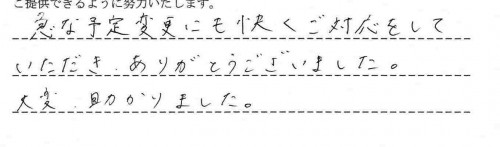 ご提供できるように努力いたします。
急な予定変更にも快くご対応をして
いただき、ありがとうございました。
大変、助かりました。